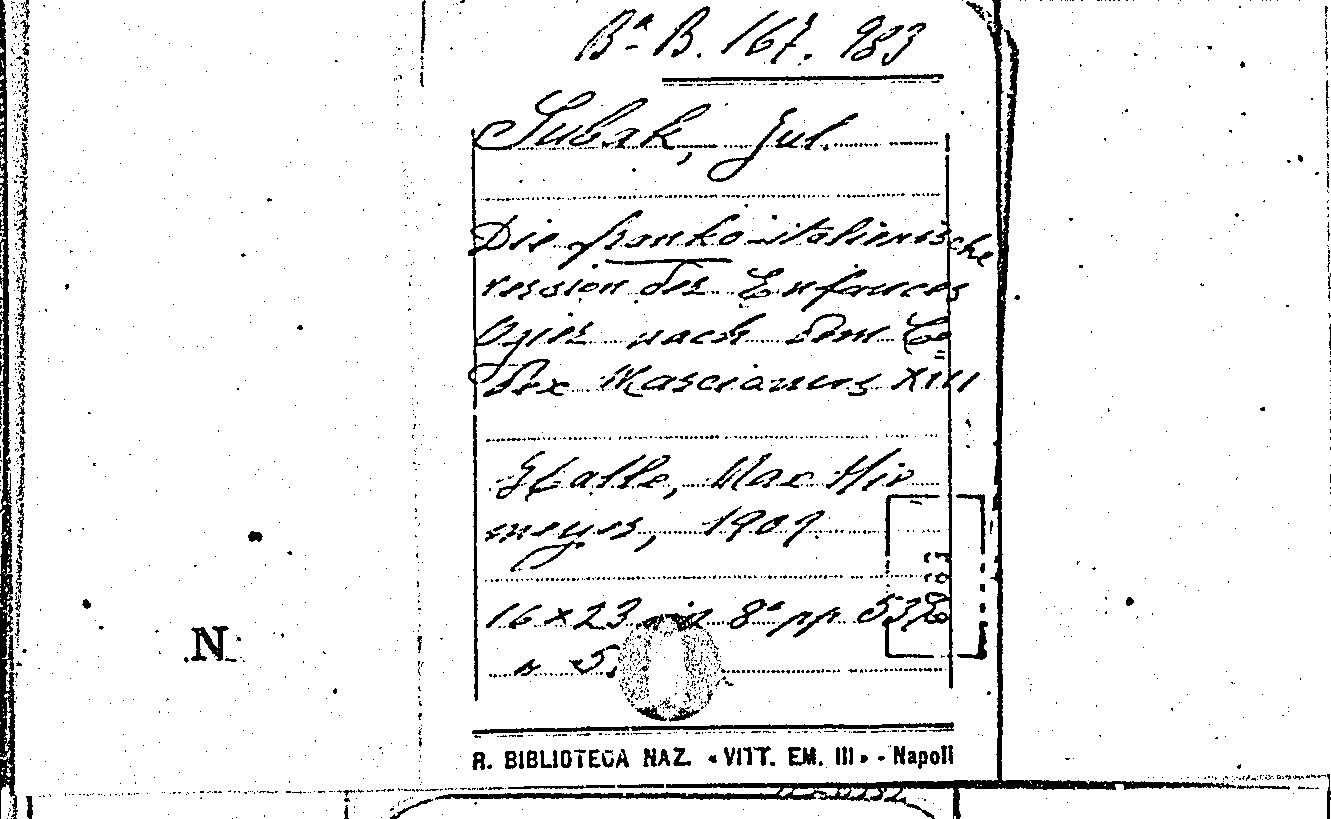 Bª B. 167. 983
Subak, Jul.
Die franko-italienische
version der Enfances
Ogier nach dem Co=
dex Marcianus XIII
Halle, Max Nie
meyer, 1909
16×23 in 8º pp 53
N
R. BIBLIOTECA NAZ. «VITT. EM. III» - Napoli